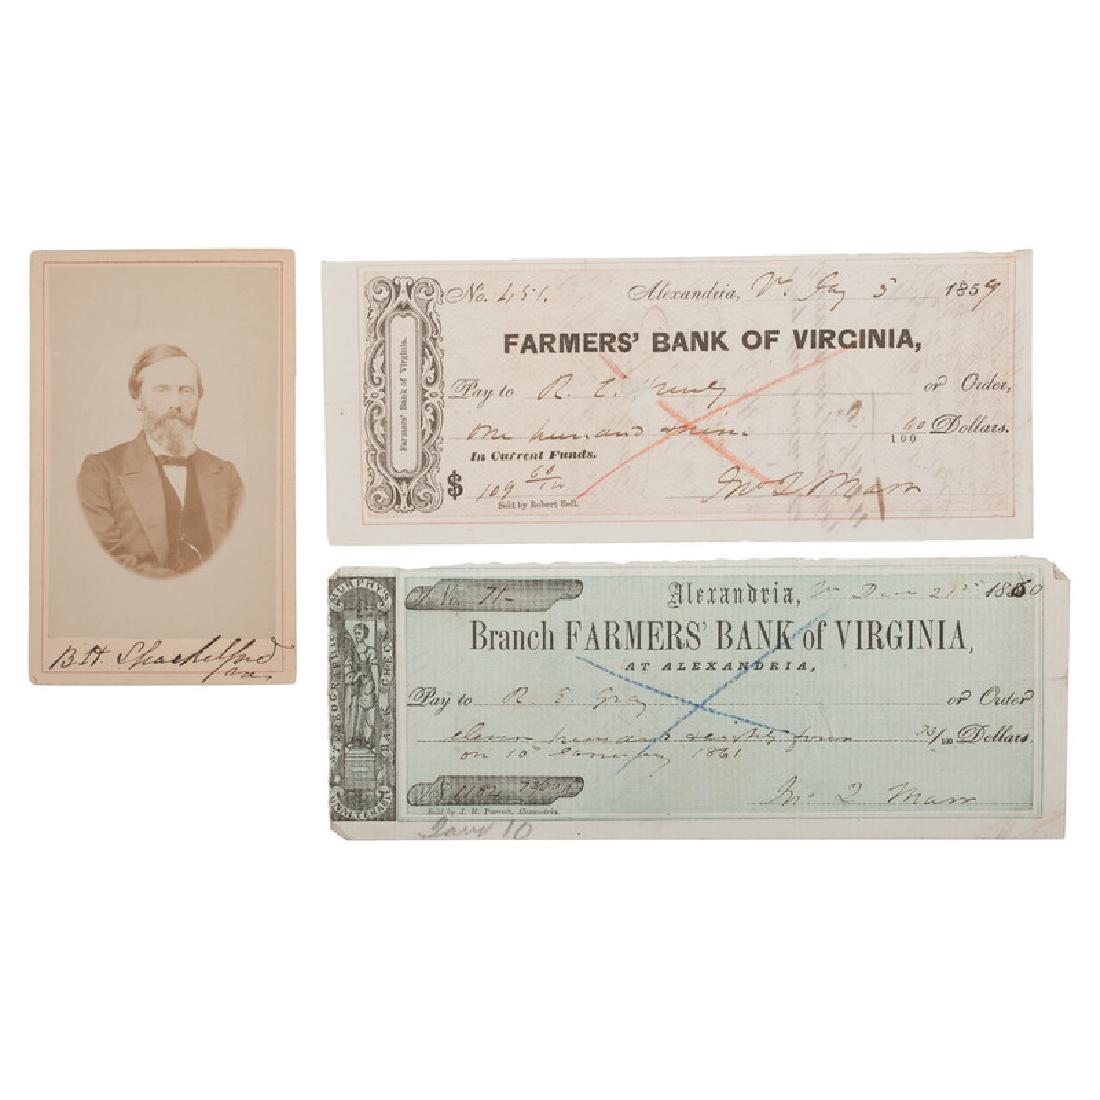 B.H. Shackelford
Va.
No. 451. Alexandria, Va. Jay 5 1859
FARMERS' BANK OF VIRGINIA,
Farmers' Bank of Virginia.
Pay to R. E. or Order,
One hundred & nine 60
100 Dollars.
In Current Funds.
$ 109 60/100
Jno Q Marr
Sold by Robert Bell.
MURPHY'S
STEREOGRAPHIC
BANK CHECK
UNALTERABLE
No. 71- Alexandria, Va Dec 21st 1860
Branch FARMERS' BANK of VIRGINIA,
AT ALEXANDRIA,
Pay to R. E. Gray or Order
eleven hundred & eighty four 73/100 Dollars.
on 10 January 1861
$ 1184 73/100
Jno Q Marr
Sold by J. H. Parrott, Alexandria.
Jany 10